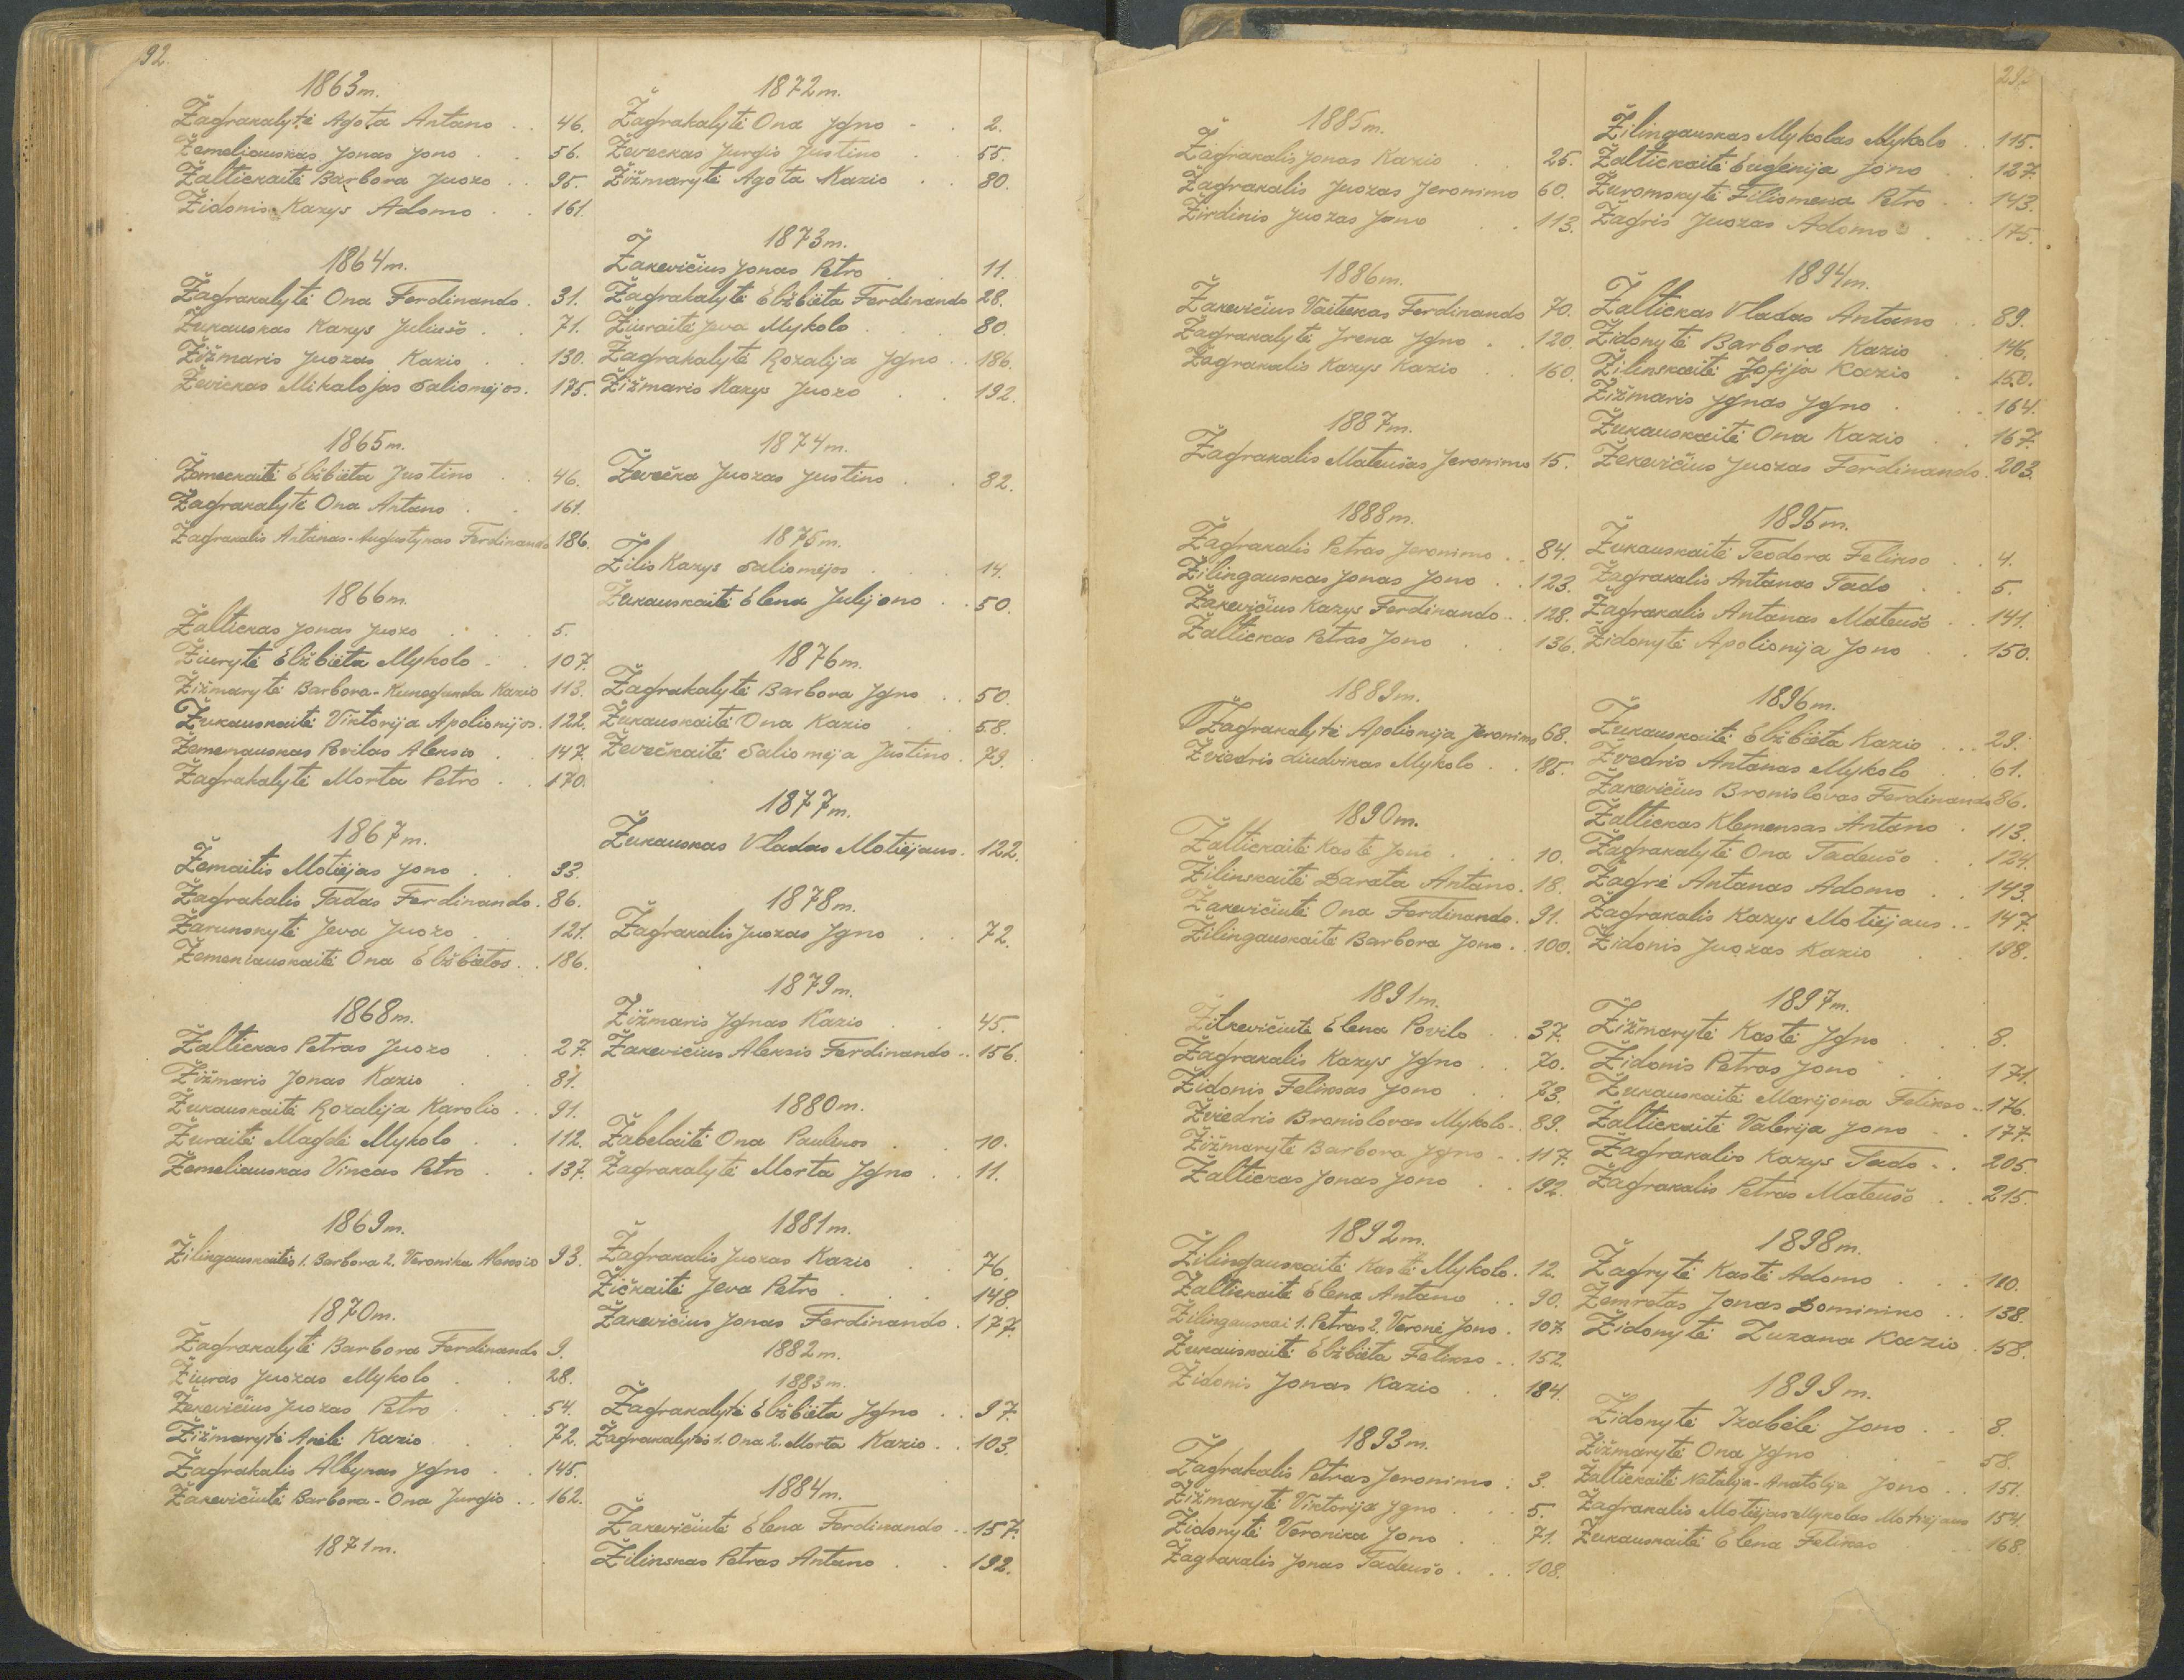 92.
1863 m.
Žagrakalytė Agota Antano . . 46.
Žemeliauskas Jonas Jono . . 56.
Žaltickaitė Barbora Juozo . . 95.
Židonis Kazys Adomo . . 161.
1864 m.
Žagrakalytė Ona Ferdinando . 31.
Žukauskas Kazys Juliušo . . 71.
Žižmaris Juozas Kazio . . 130.
Ževickas Mikalojas Saliomėjos . 175.
1865 m.
Elžbieta Justino . . 46.
Žagrakalytė Ona Antano . . 161.
Žagrakalis Antanas-Augustynas Ferdinando 186.
1866 m.
Žaltickas Jonas Juozo . . . 5.
Žiurytė Elžbieta Mykolo . . 107.
Žižmarytė Barbora-Kunegunda Kazio 113.
Žukauskaitė Viktorija Apolionijos . 122.
Žemenauskas Povilas Aleksio . . 147.
Žagrakalytė Morta Petro . . 170.
1867 m.
Žemaitis Motiejas Jono . . 33.
Žagrakalis Tadas Ferdinando . 86.
Žarunskytė Jeva Juozo . . 121.
Žemeniauskaitė Ona Elžbietos . . 186.
1868 m.
Žaltickas Petras Juozo . . 27.
Žižmaris Jonas Kazio . . 81.
Žukauskaitė Rozalija Karolio . . 91.
Žuraitė Magdė Mykolo . . 112.
Žemeliauskas Vincas Petro . . 137.
1869 m.
Žilingauskaitės 1. Barbora 2. Veronika Aleksio 93.
1870 m.
Žagrakalytė Barbora Ferdinando 9.
Žiuras Juozas Mykolo . . 28.
Žekevičius Juozas Petro . . . 54.
Žižmarytė Anelė Kazio . . 72.
Žagrakalis Albynas Jgno . . 145.
Žakevičiutė Barbora-Ona Jurgio . . 162.
1871 m.
1872 m.
Žagrakalytė Ona Jgno . . 2.
Ževeckas Jurgis Justino . . 55.
Žižmarytė Agota Kazio . . 80.
1873 m.
Žakevičius Jonas Petro . . 11.
Žagrakalytė Elžbieta Ferdinando 28.
Žiuraitė Jeva Mykolo . . . 80.
Žagrakalytė Rozalija Jgno . . 186.
Žižmaris Kazys Juozo . . 192.
1874 m.
Ževečka Juozas Justino . . 82.
1875 m.
Žilis Kazys Saliomėjos . . . 14.
Žukauskaitė Elena Julijono . . 50.
1876 m.
Žagrakalytė Barbora Jgno . . 50.
Žukauskaitė Ona Kazio . . 58.
Ževečkaitė Saliomėja Justino . 79.
1877 m.
Žukauskas Vladas Motiejaus . 122.
1878 m.
Žagrakalis Juozas Jgno . . 72.
1879 m.
Žižmaris Jgnas Kazio . . 45.
Žakevičius Aleksis Ferdinando . . 156.
1880 m.
Žabelaitė Ona Paulinos . . 10.
Žagrakalytė Morta Jgno . . 11.
1881 m.
Žagrakalis Juozas Kazio . . 76.
Žičkaitė Jeva Petro . . . 148.
Žakevičius Jonas Ferdinando . 177.
1882 m.
1883 m.
Žagrakalytė Elžbieta Jgno . . 97.
Žagrakalytės 1. Ona 2. Morta Kazio . . 103.
1884 m.
Žakevičiutė Elena Ferdinando . . 157.
Žilinskas Petras Antano . . 192.
1885 m.
Žagrakalis Jonas Kazio . . 25.
Žagrakalis Juozas Jeronimo 60.
Žirdinis Juozas Jono . . 113.
1886 m.
Žakevičius Vaiteekas Ferdinando 70.
Žagrakalytė Jrena Jgno . . 120.
Žagrakalis Kazys Kazio . . 160.
1887 m.
Žagrakalis Mateušas Jeronimo 15.
1888 m.
Žagrakalis Petras Jeronimo . . 84.
Žilingauskas Jonas Jono . . 123.
Žakevičius Kazys Ferdinando . . 128.
Žaltickas Petras Jono . . 136.
1889 m.
Žagrakalytė Apolionija Jeronimo 68.
Žviedris Liudvikas Mykolo . . 185.
1890 m.
Žaltickaitė Kastė Jono . . . 10.
Žilinskaitė Darata Antano . 18.
Žakevičiutė Ona Ferdinando . 91.
Žilingauskaitė Barbora Jono . . 100.
1891 m.
Žilkevičiutė Elena Povilo . . 37.
Žagrakalis Kazys Jgno . . 70.
Židonis Feliksas Jono . . 73.
Žviedris Bronislovas Mykolo . 89.
Žižmarytė Barbora Jgno . . 117.
Žaltickas Jonas Jono . . 192.
1892 m.
Žilingauskaitė Kastė Mykolo . 12.
Žaltickaitė Elena Antano . . 90.
Žilingauskai 1. Petras 2. Veronė Jono . 107.
Žukauskaitė Elžbieta Felikso . . 152.
Židonis Jonas Kazio . . 184.
1893 m.
Žagrakalis Petras Jeronimo . 3.
Žižmarytė Viktorija Jgno . . 5.
Židonytė Veronika Jono . . 71.
Žagrakalis Jonas Tadeušo . . . 108.
Žilingauskas Mykolas Mykolo . . 115.
Žaltickaitė Eugenija Jono . . 127.
Žuromskytė Filiomena Petro . . 143.
Žagris Juozas Adomo . . . 175.
1894 m.
Žaltickas Vladas Antano . . 89.
Židonytė Barbora Kazio . . 146.
Žilinskaitė Zofija Kazio . 150.
Žižmaris Jgnas Jgno . . . 164.
Žukauskaitė Ona Kazio . . 167.
Žekevičius Juozas Ferdinando . 203.
1895 m.
Žukauskaitė Teodora Felikso . . 4.
Žagrakalis Antanas Tado . . 5.
Žagrakalis Antanas Mateušo . . 141.
Židonytė Apolionija Jono . . 150.
1896 m.
Žukauskaitė Elžbieta Kazio . . . 29.
Žvedris Antanas Mykolo . . 61.
Žakevičius Bronislovas Ferdinando 86.
Žaltickas Klemensas Antano . 113.
Žagrakalytė Ona Tadeušo . . 124.
Žagrė Antanas Adomo . . 143.
Žagrakalis Kazys Motiejaus . . 147.
Židonis Juozas Kazio . . 198.
1897 m.
Žižmarytė Kastė Jgno . . . 8.
Židonis Petras Jono . . 171.
Žukauskaitė Marijona Felikso . . 176.
Žaltickaitė Valerija Jono . . 177.
Žagrakalis Kazys Tado . . 205.
Žagrakalis Petras Mateušo . . 215.
1898 m.
Žagrytė Kastė Adomo . . . 110.
Žemretas Jonas Dominiko . . 138.
Židonytė Zuzana Kazio . 158.
1899 m.
Židonytė Izabėlė Jono . . 8.
Žižmarytė Ona Jgno . . 58.
Žaltickaitė Natalija-Anatolija Jono . . 151.
Žagrakalis Motiejas-Mykolas Motiejaus 154.
Žukauskaitė Elena Felikso 168.